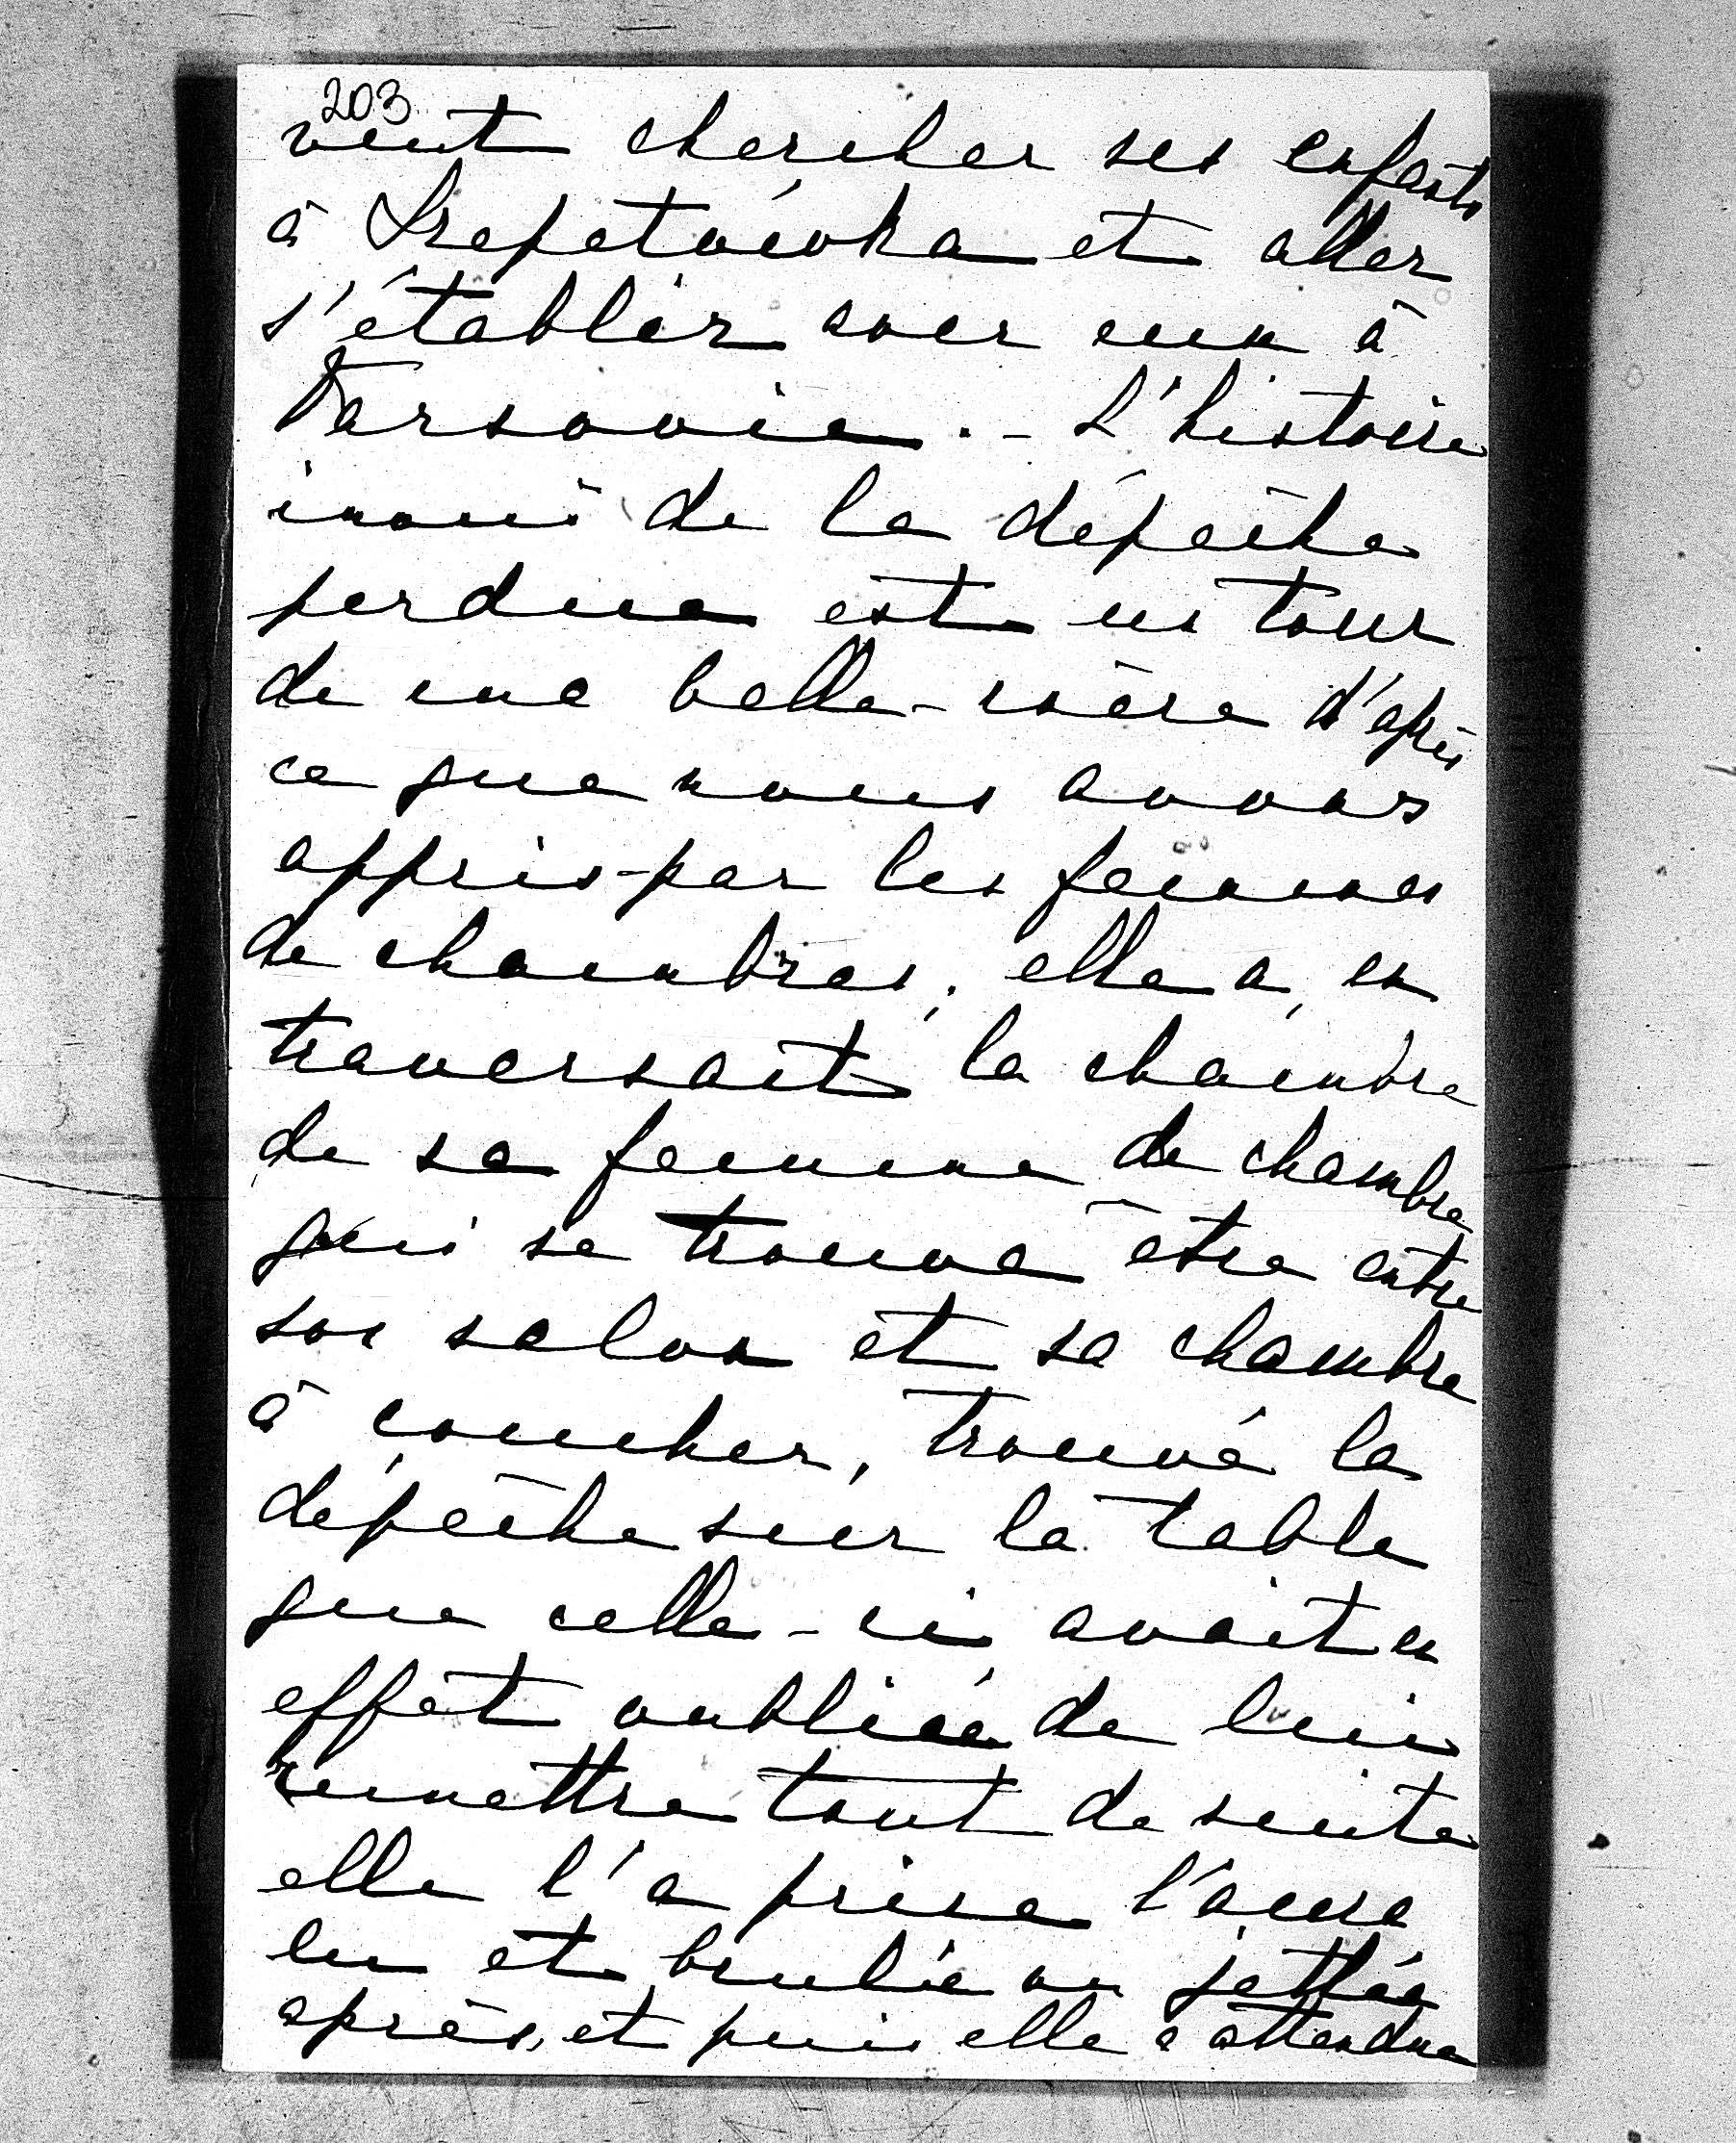 203
veut chercher ses enfants
à Srepetovka et aller
s'établir avec eux à
Varsovie. - L'histoire
inouï de la dépêche
perdue est un tour
de ma belle-mère d'après
ce que nous avons
appris-par les femmes
de chambres, elle a, en
traversait la chambre
de sa femme de chambre
qui se trouve être entre
son salon et sa chambre
à coucher, trouvé la
dépêche sur la table
que celle-ci avait en
effet oubliée de lui
remettre tout de suite
elle l'a prise l'aura
lu et brulée ou jettée
après, et puis elle a attendue